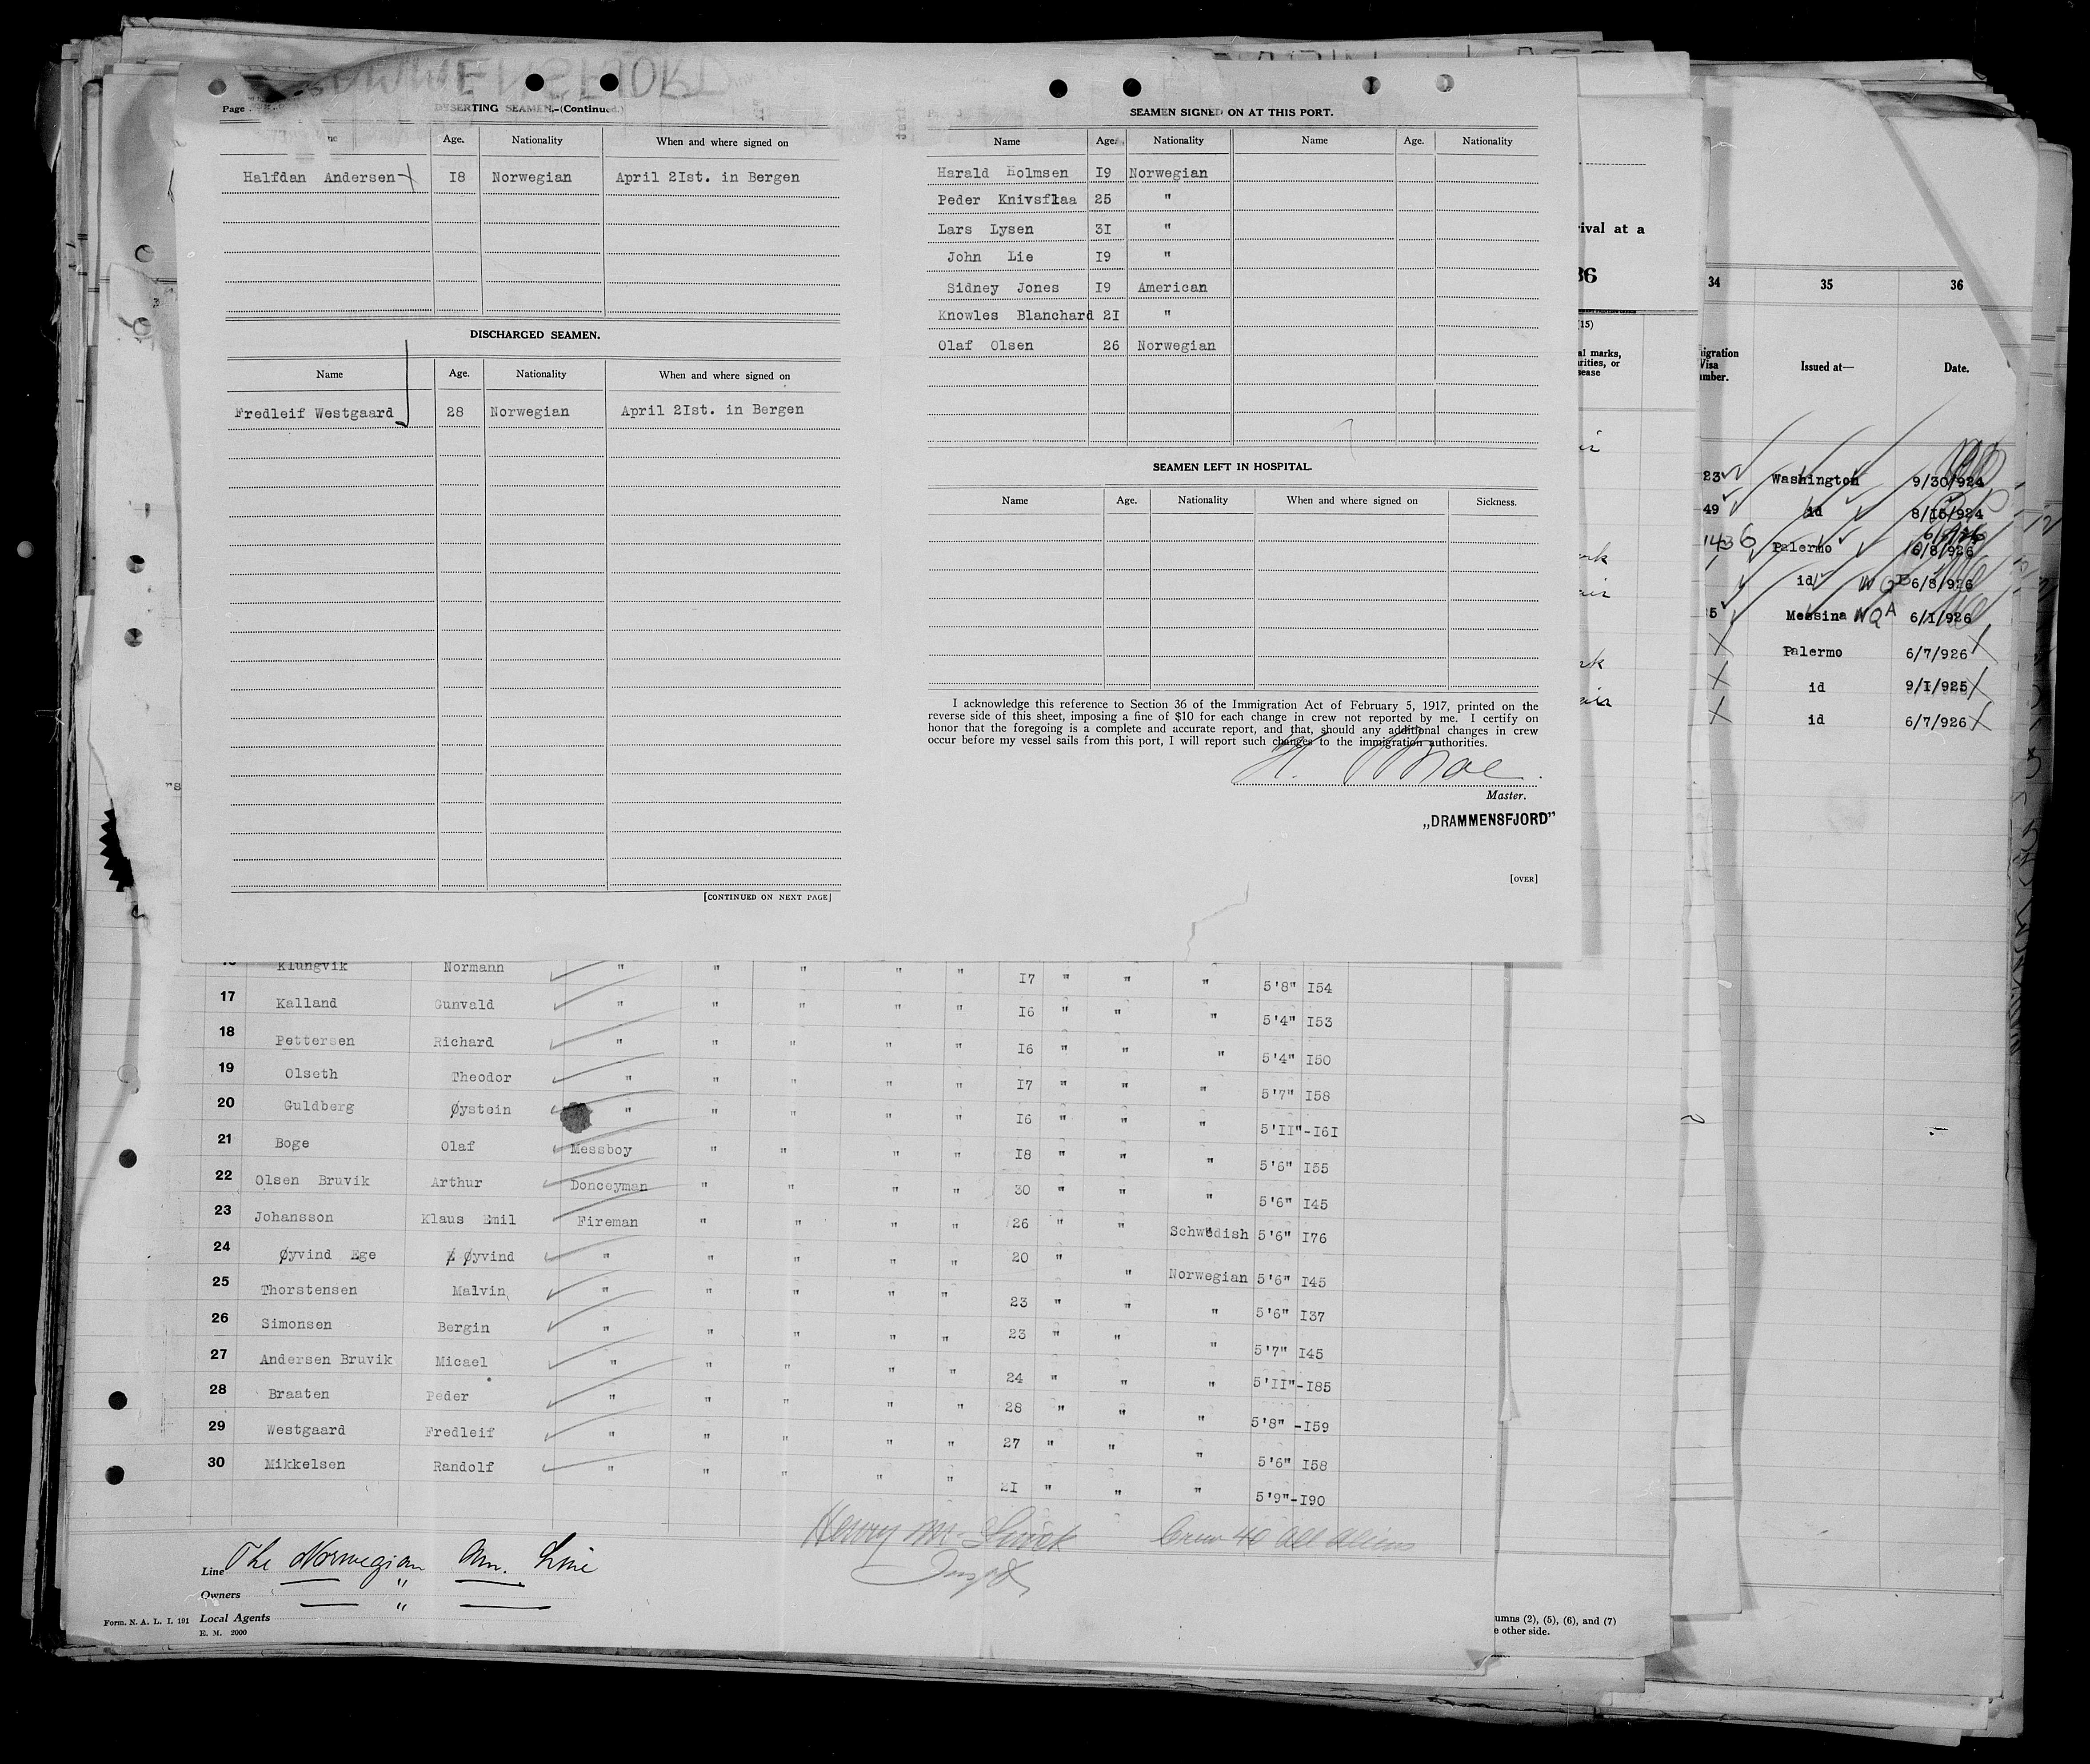 Page
DESERTING SEAMEN.-(Continued.)
Age. Nationality When and where signed on
Halfdan Andersen 18 Norwegian April 21st. in Bergen
DISCHARGED SEAMEN.
Name Age. Nationality When and where signed on
Fredleif Westgaard 28 Norwegian April 21st. in Bergen
[CONTINUED ON NEXT PAGE]
SEAMEN SIGNED ON AT THIS PORT.
Name Age. Nationality Name Age. Nationality
Harald Holmsen 19 Norwegian
Peder Knivsflaa 25 "
Lars Lysen 31 "
John Lie 19 "
Sidney Jones 19 American
Knowles Blanchard 21 "
Olaf Olsen 26 Norwegian
SEAMEN LEFT IN HOSPITAL.
Name Age. Nationality When and where signed on Sickness.
I acknowledge this reference to Section 36 of the Immigration Act of February 5, 1917, printed on the
reverse side of this sheet, imposing a fine of $10 for each change in crew not reported by me. I certify on
honor that the foregoing is a complete and accurate report, and that, should any additional changes in crew
occur before my vessel sails from this port, I will report such changes to the immigration authorities.
Master.
„DRAMMENSFJORD"
[OVER]
Klungvik Normann " " " " " 17 " " " 5'8" 154
17 Kalland Gunvald " " " " " 16 " " " 5'4" 153
18 Pettersen Richard " " " " " 16 " " " 5'4" 150
19 Olseth Theodor " " " " " 17 " " " 5'7" 158
20 Guldberg Øystein " " " " " 16 " " " 5'11"-161
21 Boge Olaf Messboy " " " " 18 " " " 5'6" 155
22 Olsen Bruvik Arthur Donceyman " " " " 30 " " " 5'6" 145
23 Johansson Klaus Emil Fireman " " " " 26 " " Schwedish 5'6" 176
24 Øyvind Ege Øyvind " " " " " 20 " " Norwegian 5'6" 145
25 Thorstensen Malvin " " " " " 23 " " " 5'6" 137
26 Simonsen Bergin " " " " " 23 " " " 5'7" 145
27 Andersen Bruvik Micael " " " " " 24 " " " 5'11"-185
28 Braaten Peder " " " " " 28 " " " 5'8" -159
29 Westgaard Fredleif " " " " " 27 " " " 5'6" 158
30 Mikkelsen Randolf " " " " " 21 " " " 5'9"-190
Crew 40 all aliens
Line The Norwegian Am. Line
Owners "
Local Agents "
Form. N. A. L. I. 191
E. M. 2000
rival at a
36
(15)
al marks,
arities, or
sease
umns (2), (5), (6), and (7)
e other side.
34 35 36
igration
Visa
mber. Issued at— Date.
23 Washington 9/30/924
49 id 8/15/924
1436 Palermo 6/8/926
id 6/8/926
5 Messina NQA 6/1/926
Palermo 6/7/926
id 9/1/925
id 6/7/926